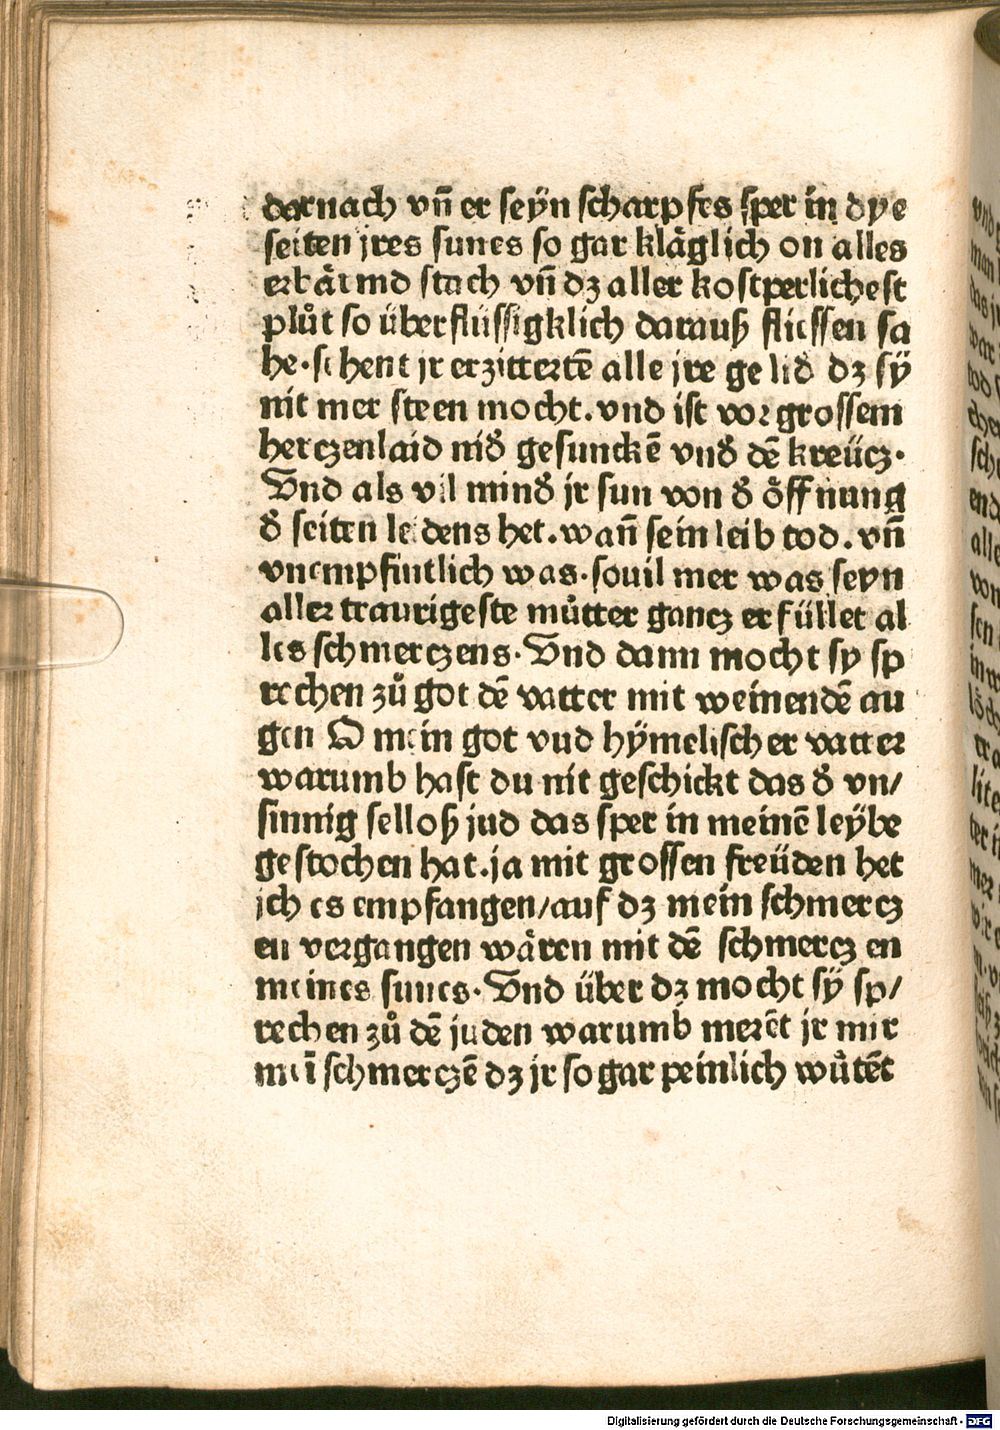 darnach vñ er seÿn scharpfes sper in dye
seiten jres sunes so gar kläglich on alles
erbärmd stach vñ dz aller kostperlichest
plůt so überflüssigklich darauß fliessen sa
he. sehent jr erzittertē alle jre gelid dz sÿ
nit mer steen mocht. vnd ist vor grossem
herczenlaid nid gesunckē vnd dē kreücz.
Vnd als vil mind jr sun von d öffnung
d seiten leidens het. wañ sein leib tod. vñ
vnempfintlich was. souil mer was seyn
aller traurigeste můtter gancz erfüllet al
les schmerczens. Vnd dann mocht sy sp
rechen zů got dē vatter mit weinendē au
gen O mein got vnd hÿmelischer vatter
warumb hast du nit geschickt das d vn/
sinnig selloß jud das sper in meinē leÿbe
gestochen hat. ja mit grossen freüden het
jch es empfangen/auf dz mein schmercz
en vergangen wären mit dē schmerczen
meines sunes. Vnd über dz mocht sÿ sp/
rechen zů dē juden warumb merēt jr mir
mei schmerczē dz jr so gar peinlich wůtēt
Digitalisierung gefördert durch die Deutsche Forschungsgemeinschaft - DFG